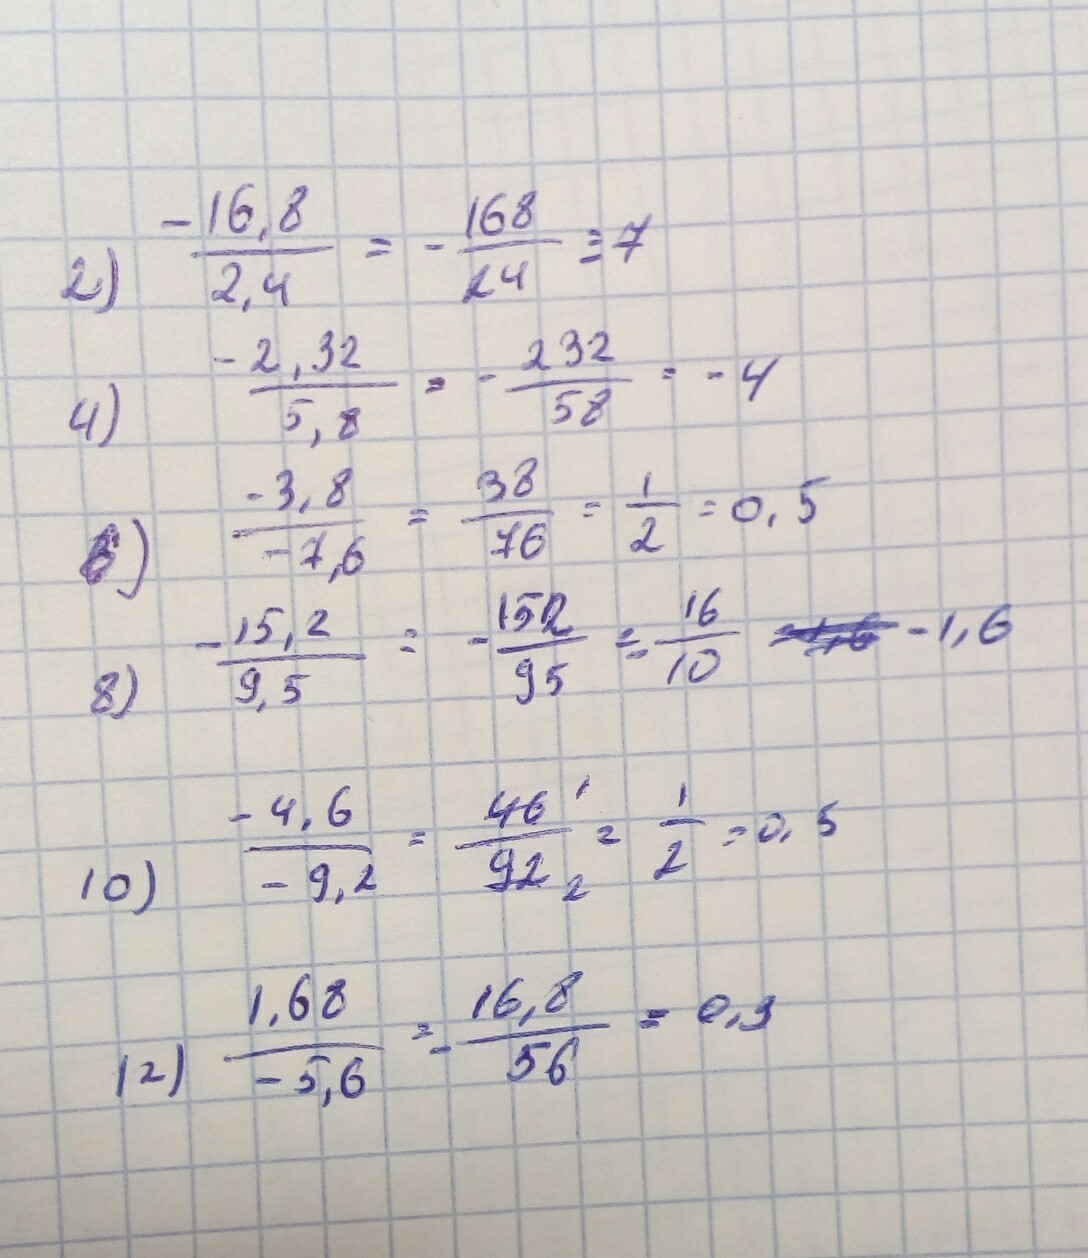 2) -16,8/2,4 = -168/24 = 7
4) -2,32/5,8 = -232/58 = -4
6) -3,8/-7,6 = 38/76 = 1/2 = 0,5
8) -15,2/9,5 = -152/95 = -16/10 -1,6
10) -4,6/-9,2 = 46 1/92 2 = 1/2 = 0,5
12) 1,68/-5,6 = -16,8/56 = 0,3